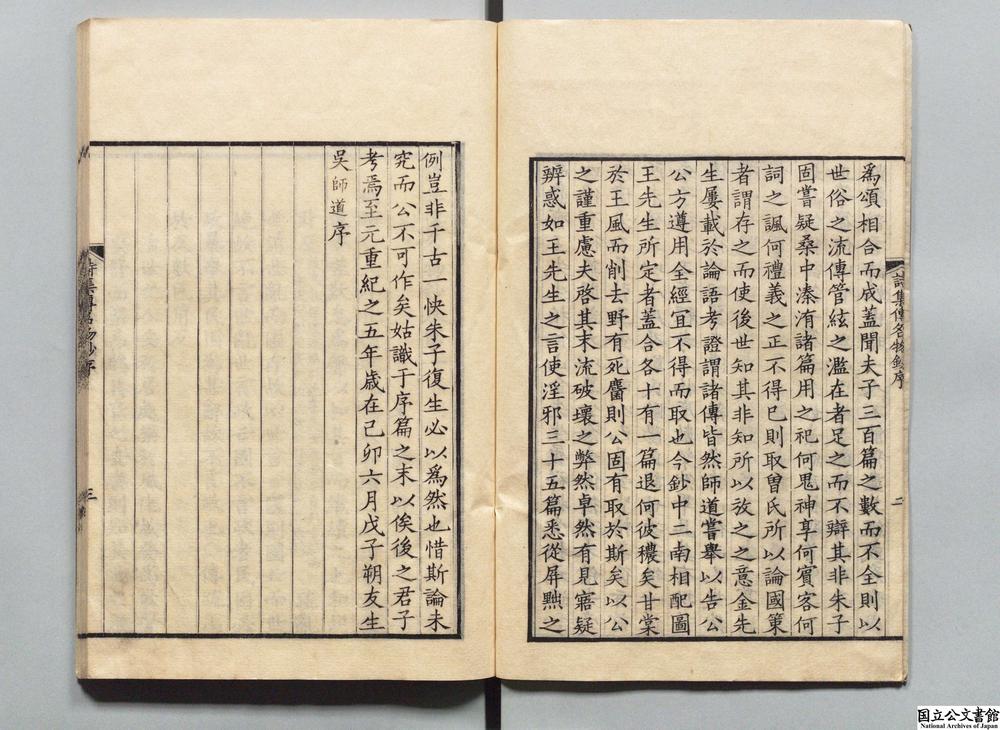 詩集傳名物鈔序
二
爲頌相合而成蓋聞夫子三百篇之數而不全則以
世俗之流傳管絃之濫在者足之而不辯其非朱子
固嘗疑桑中溱洧諸篇用之祀何鬼神享何賓客何
詞之諷何禮義之正不得已則取曽氏所以論國策
者謂存之而使後世知其非知所以放之之意金先
生屢載於論語考證謂諸傳皆然師道嘗舉以告公
公方遵用全經冝不得而取也今鈔中二南相配圖
王先生所定者蓋合各十有一篇退何彼穠矣甘棠
於王風而削去野有死麕則公固有取於斯矣以公
之謹重慮夫啓其末流破壞之弊然卓然有見寤疑
辨惑如王先生之言使淫邪三十五篇悉從屏黜之
例豈非千古一快朱子復生必以爲然也惜斯論未
究而公不可作矣姑識于序篇之末以俟後之君子
考焉至元重紀之五年歳在己卯六月戊子朔友生
吳師道序
詩集傳名物鈔序
三
国立公文書館
National Archives of Japan